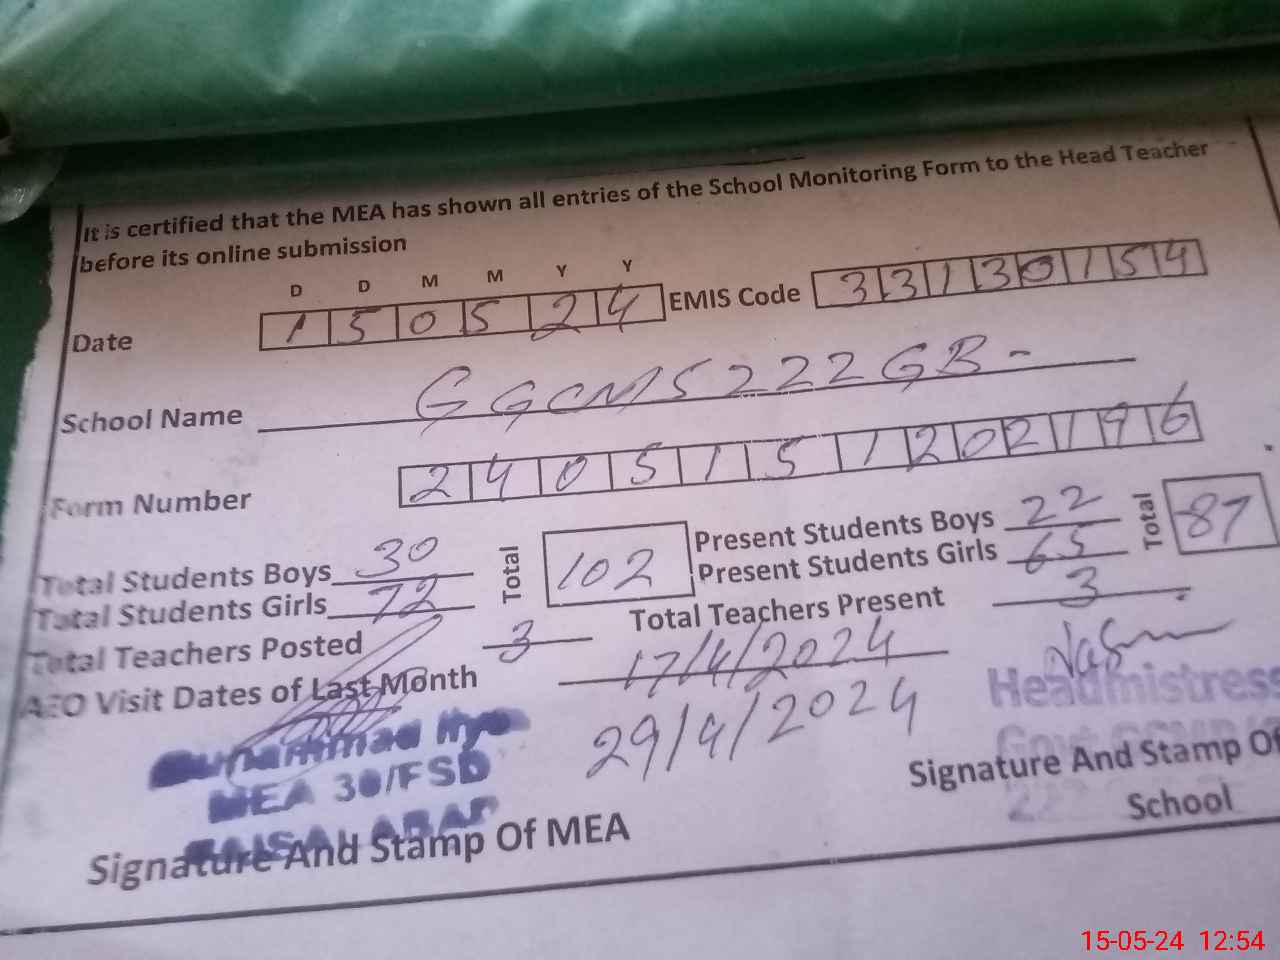 It is certified that the MEA has shown all entries of the School Monitoring Form to the Head Teacher
before its online submission
D D M M Y Y
Date 1 5 0 5 2 4 EMIS Code 3 3 1 3 0 1 5 4
School Name GGCMS 222 GB -
Form Number 2 4 0 5 1 5 1 2 0 2 1 9 6
Total Students Boys 30 Total 102 Present Students Boys 22 Total 87
Total Students Girls 72 Present Students Girls 65
Total Teachers Posted 3 Total Teachers Present 3
AEO Visit Dates of Last Month 17/4/2024
29/4/2024
Headmistress
Muhammad
MEA 30/FSD
FAISALABAD
Signature And Stamp Of MEA
Signature And Stamp Of
School
15-05-24 12:54